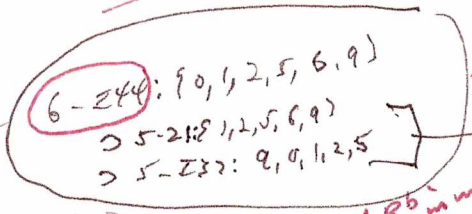 6-Z44: {0, 1, 2, 5, 6, 9}
⊃ 5-21: {1, 2, 5, 6, 9}
⊃ 5-Z37: 9, 0, 1, 2, 5